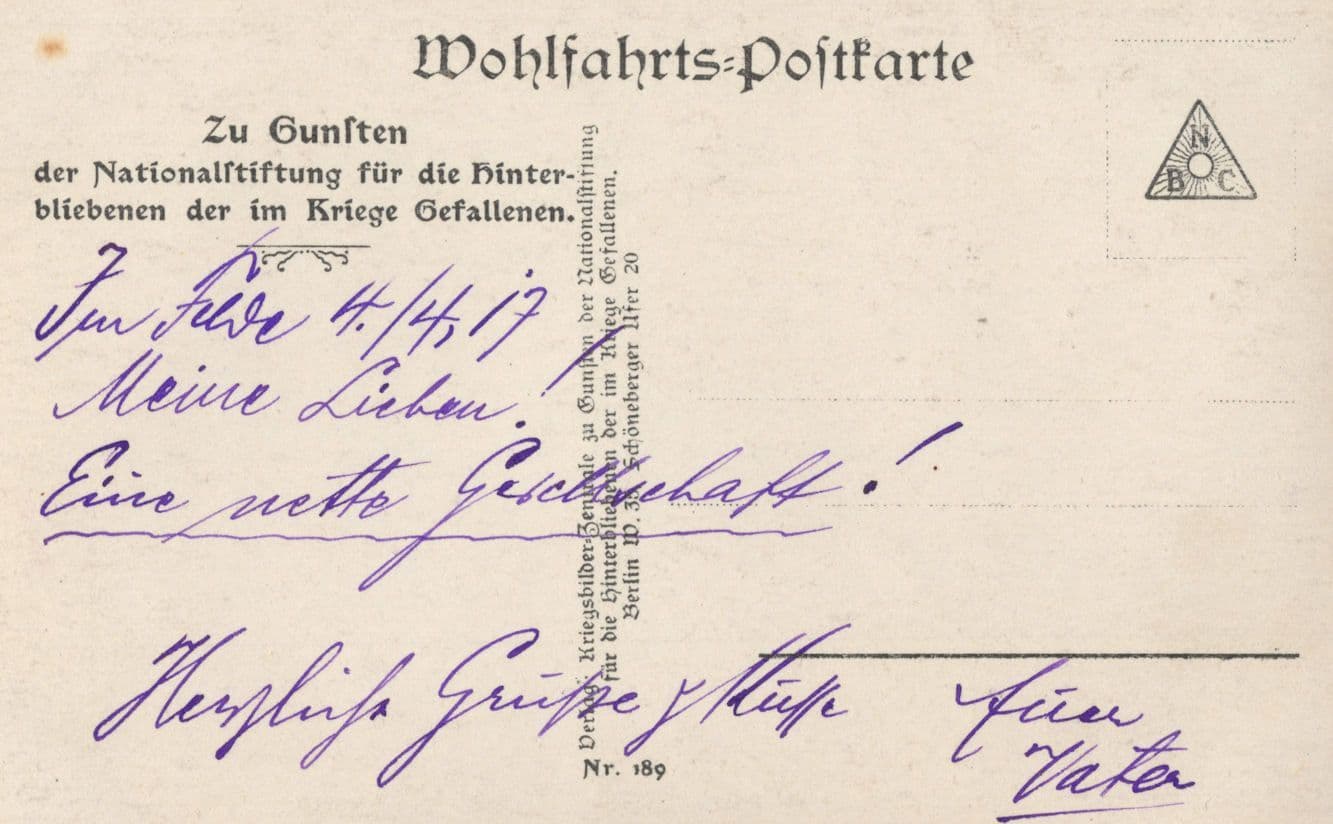 Wohlfahrts-Postkarte
Zu Gunsten
der Nationalstiftung für die Hinter-
bliebenen der im Kriege Gefallenen.
N
B C
Im Felde 4./4, 17
Meine Lieben!
Eine nette Gesellschaft!
Herzliche Grüße & Küsse Euer
Vater
Verlag: Kriegsbilder-Zentrale zu Gunsten der Nationalstiftung
für die Hinterbliebenen der im Kriege Gefallenen.
Berlin W. 35 Schöneberger Ufer 20
Nr. 189